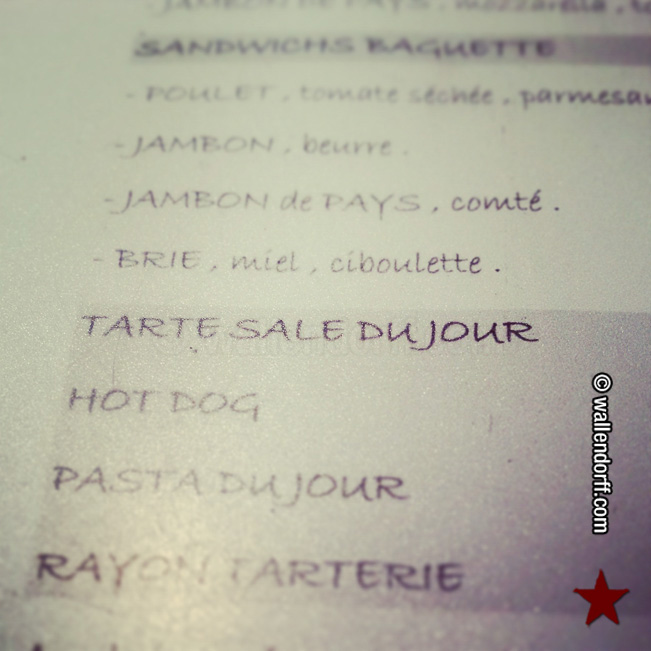 JAMBON DE PAYS, mozzarella,
SANDWICHS BAGUETTE
- POULET, tomate séchée, parmesan
- JAMBON, beurre.
- JAMBON de PAYS, comté.
- BRIE, miel, ciboulette.
TARTE SALE DU JOUR
HOT DOG
PASTA DU JOUR
RAYON TARTERIE
© wallendorff.com